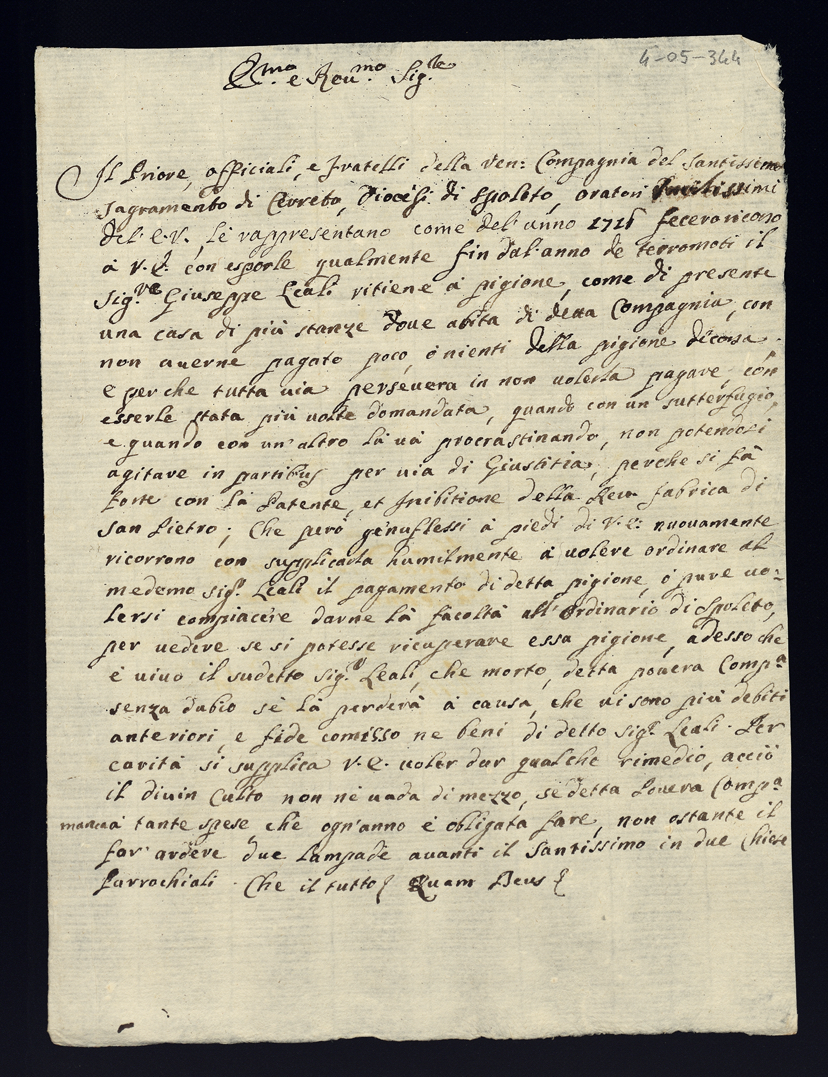 4-05-344
E.mo e Rev.mo Sig.re
Il Priore, officiali, e fratelli della Ven: Compagnia del Santissimo
Sagramento di Cerreto, Diocesi di Spoleto, oratori humilissimi
dell'E.V., le rappresentano come del' anno 1716 fecero ricorso
à V.E. con esporle qualmente fin dal' anno de terremoti il
Sig.re Giuseppe Leali ritiene à pigione, come di presente
una casa di più stanze doue abita di detta Compagnia, con
non auerne pagato poco, ò nienti della pigione decorsa.
e perche tutta uia perseuera in non uolerla pagare, con
esserle stata più uolte domandata, quando con un sutterfugio,
e quando con un' altro la uà procrastinando, non potendosi
agitare in partibus per uia di Giustitia, perche si fà
forte con la Patente, et Inibitione della Reu. fabrica di
San Pietro; Che però genuflessi à piedi di V.E: nuouamente
ricorrono con supplicarla humilmente à uolere ordinare al
medemo Sig.r Leali il pagamento di detta pigione, ò pure uo-
lersi compiacere darne la facoltà all' Ordinario di Spoleto,
per uedere se si potesse ricuperare essa pigione, adesso che
è uiuo il sudetto Sig.r Leali, che morto, detta pouera Comp.a
senza dubio se la perderà à causa, che ui sono più debiti
anteriori, e fide comisso ne beni di detto Sig.r Leali. Per
carità si supplica V.E. uoler dar qualche rimedio, acciò
il diuin Culto non ne uada di mezzo, se detta Pouera Comp.a
manca à tante spese, che ogn' anno è obligata fare, non ostante il
far' ardere due lampade auanti il Santissimo in due Chiese
Parrochiali. Che il tutto Quam Deus